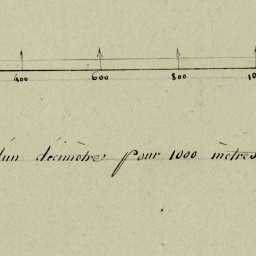 400 600 800
d'un décimètre pour 1000 mètres